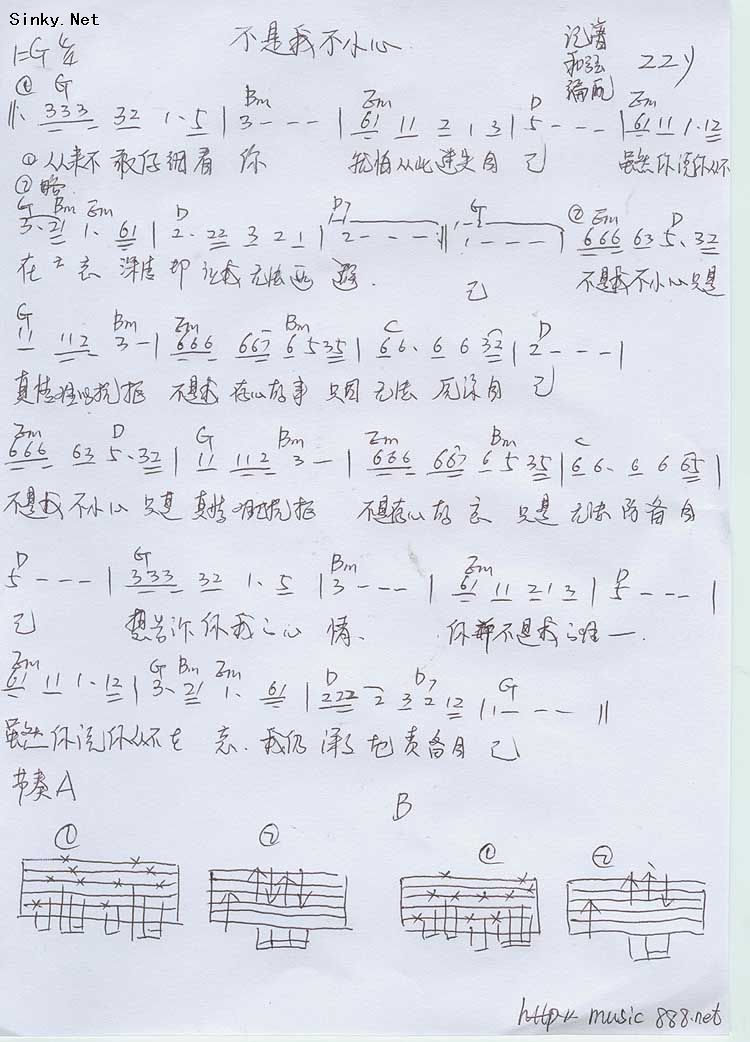 Sinky.Net
不是我不小心
1=G 4/4
记谱
和弦
编配
ZZY
① G Bm Em D Em
‖: 333 32 1· 5 | 3 - - - | 61 11 2 1 3 | 5 - - - | 61 11 1·12
① 从来不敢仔细看 你 就怕从此迷失自 己 虽然你说你从不
② 略
G Bm Em D D7 G ② Em D
3·21 1· 61 | 2· 22 3 2 1 | 2 - - - :‖ 1 - - - | 666 63 5·32
在 意 深情却让我无法 己 不是我不小心只是
G Bm Em Bm C D
11 112 3 - | 666 667 6 535 | 66· 6 6 32 | 2 - - - |
真情难以抗拒 不是我存心故事 只因 无法 自 己
Em D G Bm Em Bm C
666 63 5·32 | 11 112 3 - | 666 667 6 535 | 66· 6 6 65 |
不是我 不小心 只是 真情难以抗拒 不是存心故意 只是 无法防备自
D G Bm Em D
5 - - - | 333 32 1· 5 | 3 - - - | 61 11 21 3 | 5 - - - |
己 你我之心 情 你 不是我 唯一
Em G Bm Em D D7 G
61 11 1·12 | 3·21 1· 61 | 222 2 3 2 12 | 1 - - - ‖
虽然你说你从不在 意 我仍深深地责备自 己
节奏A
B
① ② ① ②
music 888.net